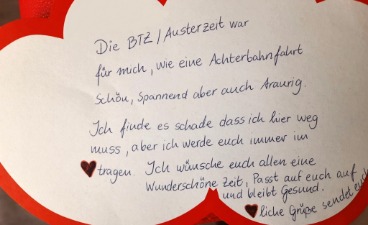 Die BTZ / Austerzeit war
für mich, wie eine Achterbahnfahrt
Schön, Spannend aber auch Traurig.
Ich finde es schade dass ich hier weg
muss, aber ich werde euch immer im
♥ tragen. Ich wünsche euch allen eine
Wunderschöne Zeit, Passt auf euch auf
und bleibt Gesund.
♥ liche Grüße sendet